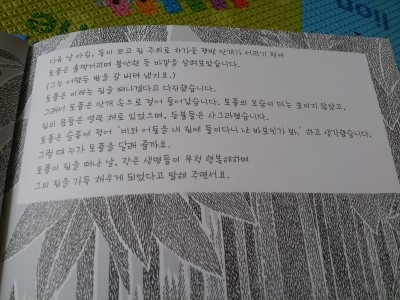 다음 날 아침, 동이 트고 집 주위로 차가운 잿빛 안개가 서리기 전에
토플은 훌쩍거리며 불안한 듯 바깥을 살펴보았습니다.
(그는 어쨌든 밤을 잘 버텨 냈지요.)
토플은 이제는 집을 떠나겠다고 다짐했습니다.
그래서 토플은 안개 속으로 걸어 들어갔습니다. 토플의 모습이 더는 보이지 않았고,
집의 문들은 열린 채로 있었으며, 등불들은 사그라졌습니다.
토플은 슬픔에 젖어 '비와 어둠을 내 집에 들이다니 난 바보인가 봐.' 하고 생각했습니다.
그럴 때 누가 토플을 달래 줄까요.
토플이 집을 떠난 날, 작은 생명들이 무척 행복해하며
그의 집을 가득 채우게 되었다고 말해 주면서요.